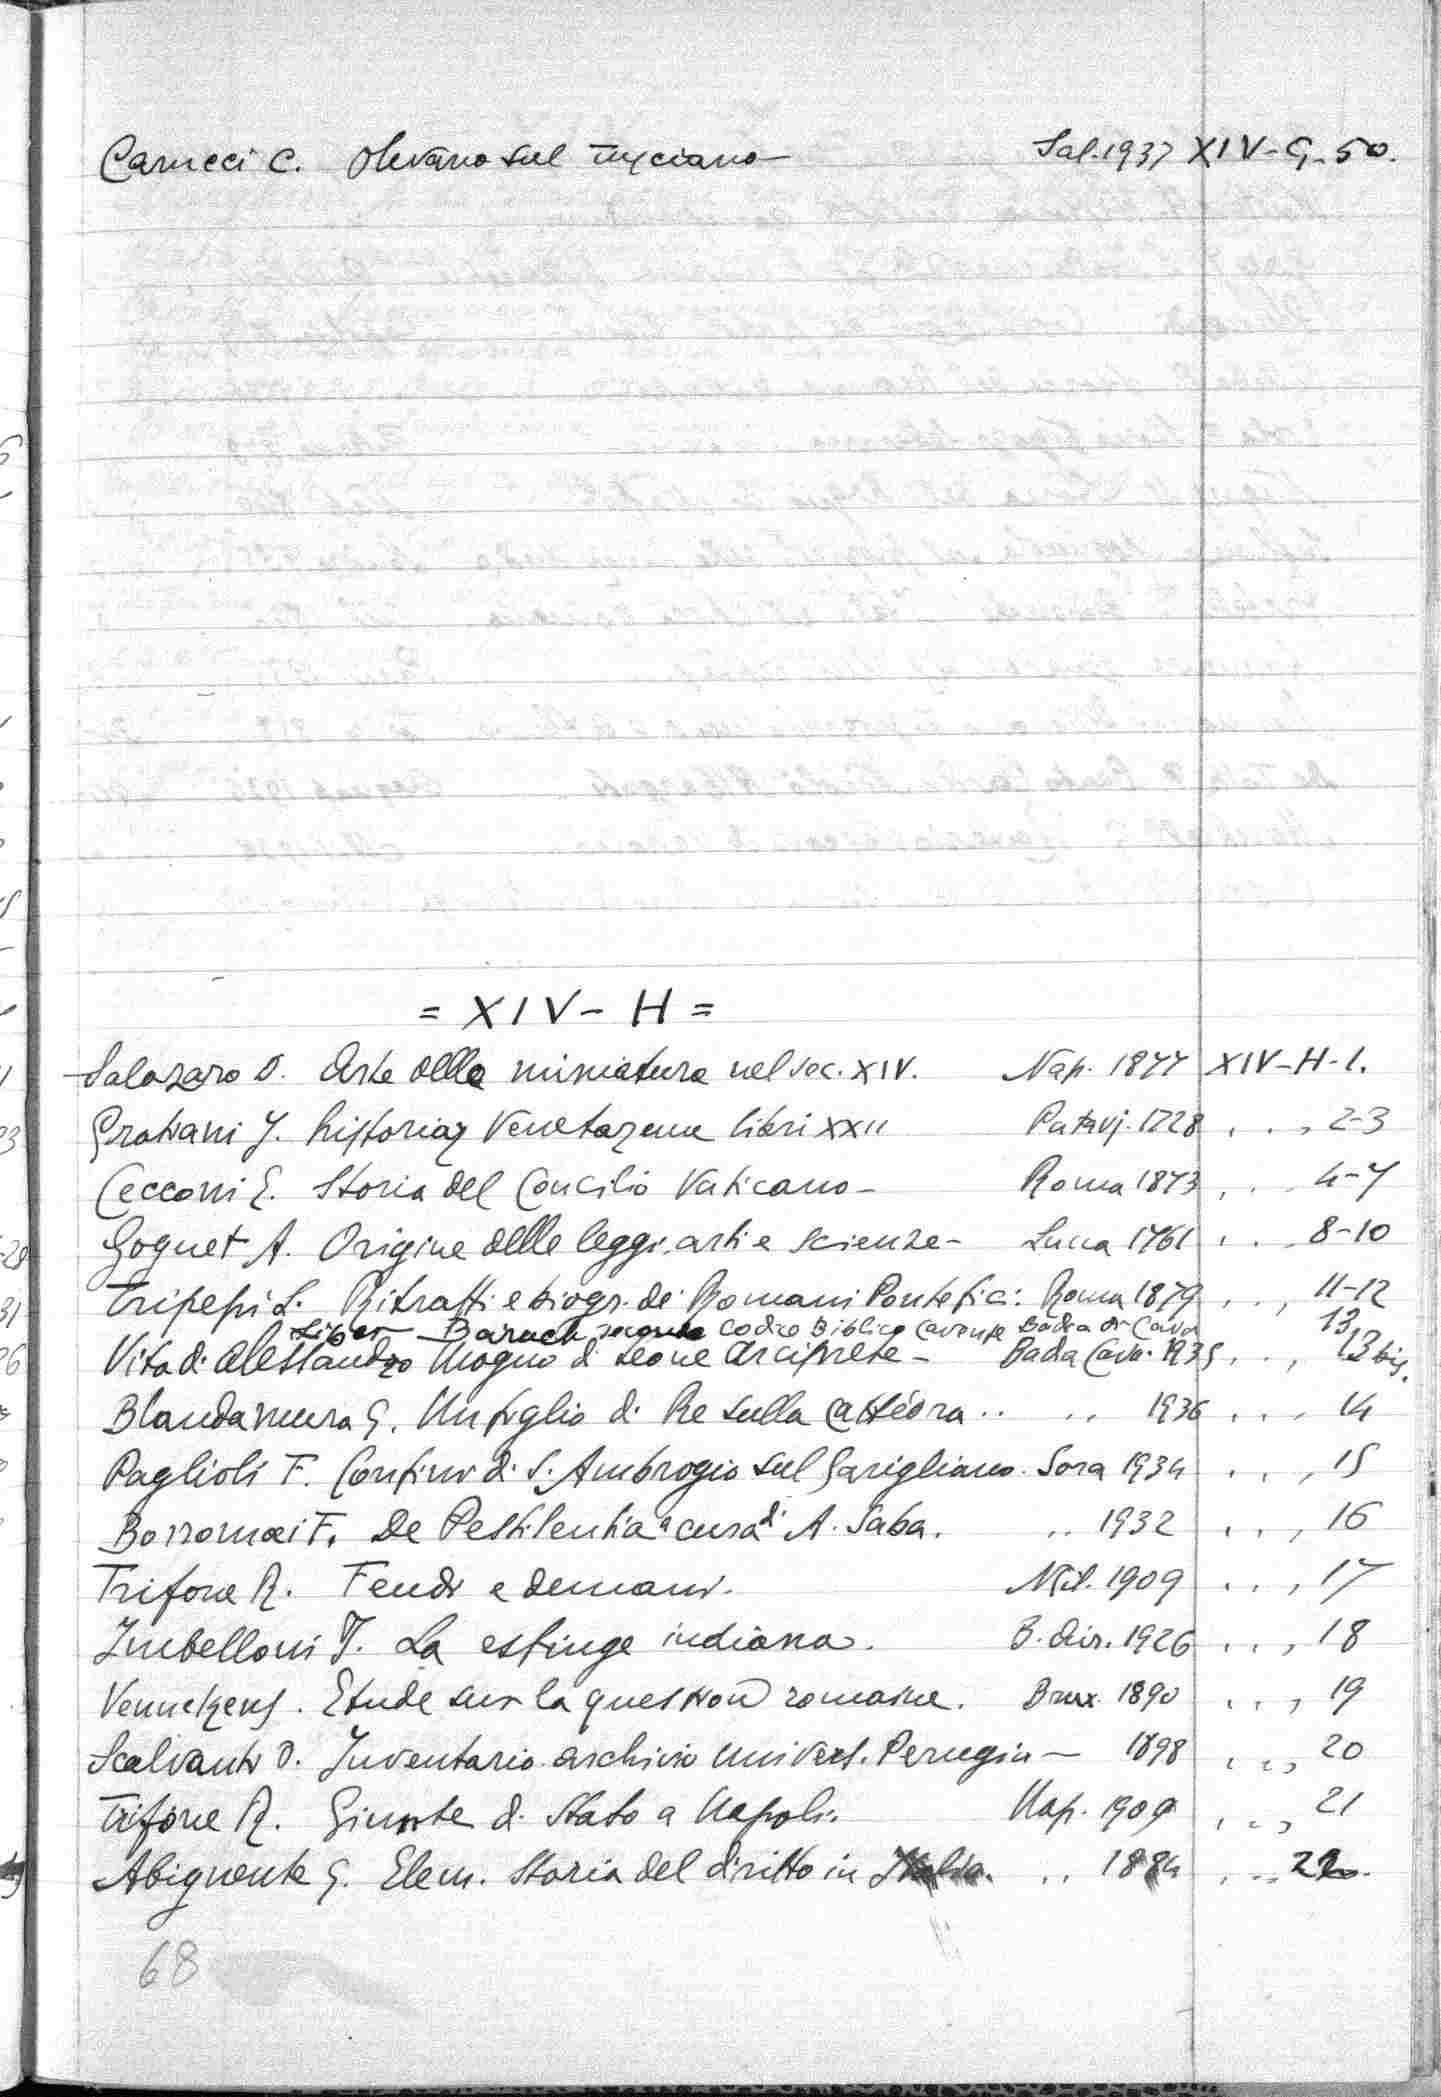 Carucci C. Olevano sul Tusciano — Sal. 1937 XIV-G-50.
= XIV - H =
Salazaro D. Arte della miniatura nel sec. XIV. Nap. 1877 XIV-H-1.
Gratiani J. historiaz Venetarum libri XXII Patavj. 1728 . . , 2-3
Cecconi E. Storia del Concilio Vaticano — Roma 1873 , . . 4-7
Goguet A. Origine delle leggi, arti e scienze — Lucca 1761 . . , 8-10
Tripepi L. Ritratti e biogr. de' Romani Pontefici. Roma 1879 . . , 11-12
Liber Baruch secondo codice Biblico Cavense Badia di Cava 13
Vita di Alessandro Magno di Leone Arciprete — Badia Cava. 1935 . . , 13 bis.
Blandamura G. Un figlio di Re sulla cattedra .. .. 1936 . . . 14
Paglioli F. Confini di S. Ambrogio sul Garigliano. Sora 1934 . . , 15
Borromæi F. De Pestilentia a cura di A. Saba. .. 1932 . . , 16
Trifone R. Feudi e demani. Mil. 1909 . . , 17
Imbelloni J. La esfinge indiana. B. Air. 1926 . . , 18
Vennekens. Etude sur la question romaine. Brux. 1890 . . , 19
Scalvanti O. Inventario archivio Univers. Perugia — 1898 . . , 20
Trifone R. Giunte di Stato a Napoli. Nap. 1909 . . , 21
Abignente G. Elem. Storia del diritto in Italia. .. 1884 . . . 22.
68